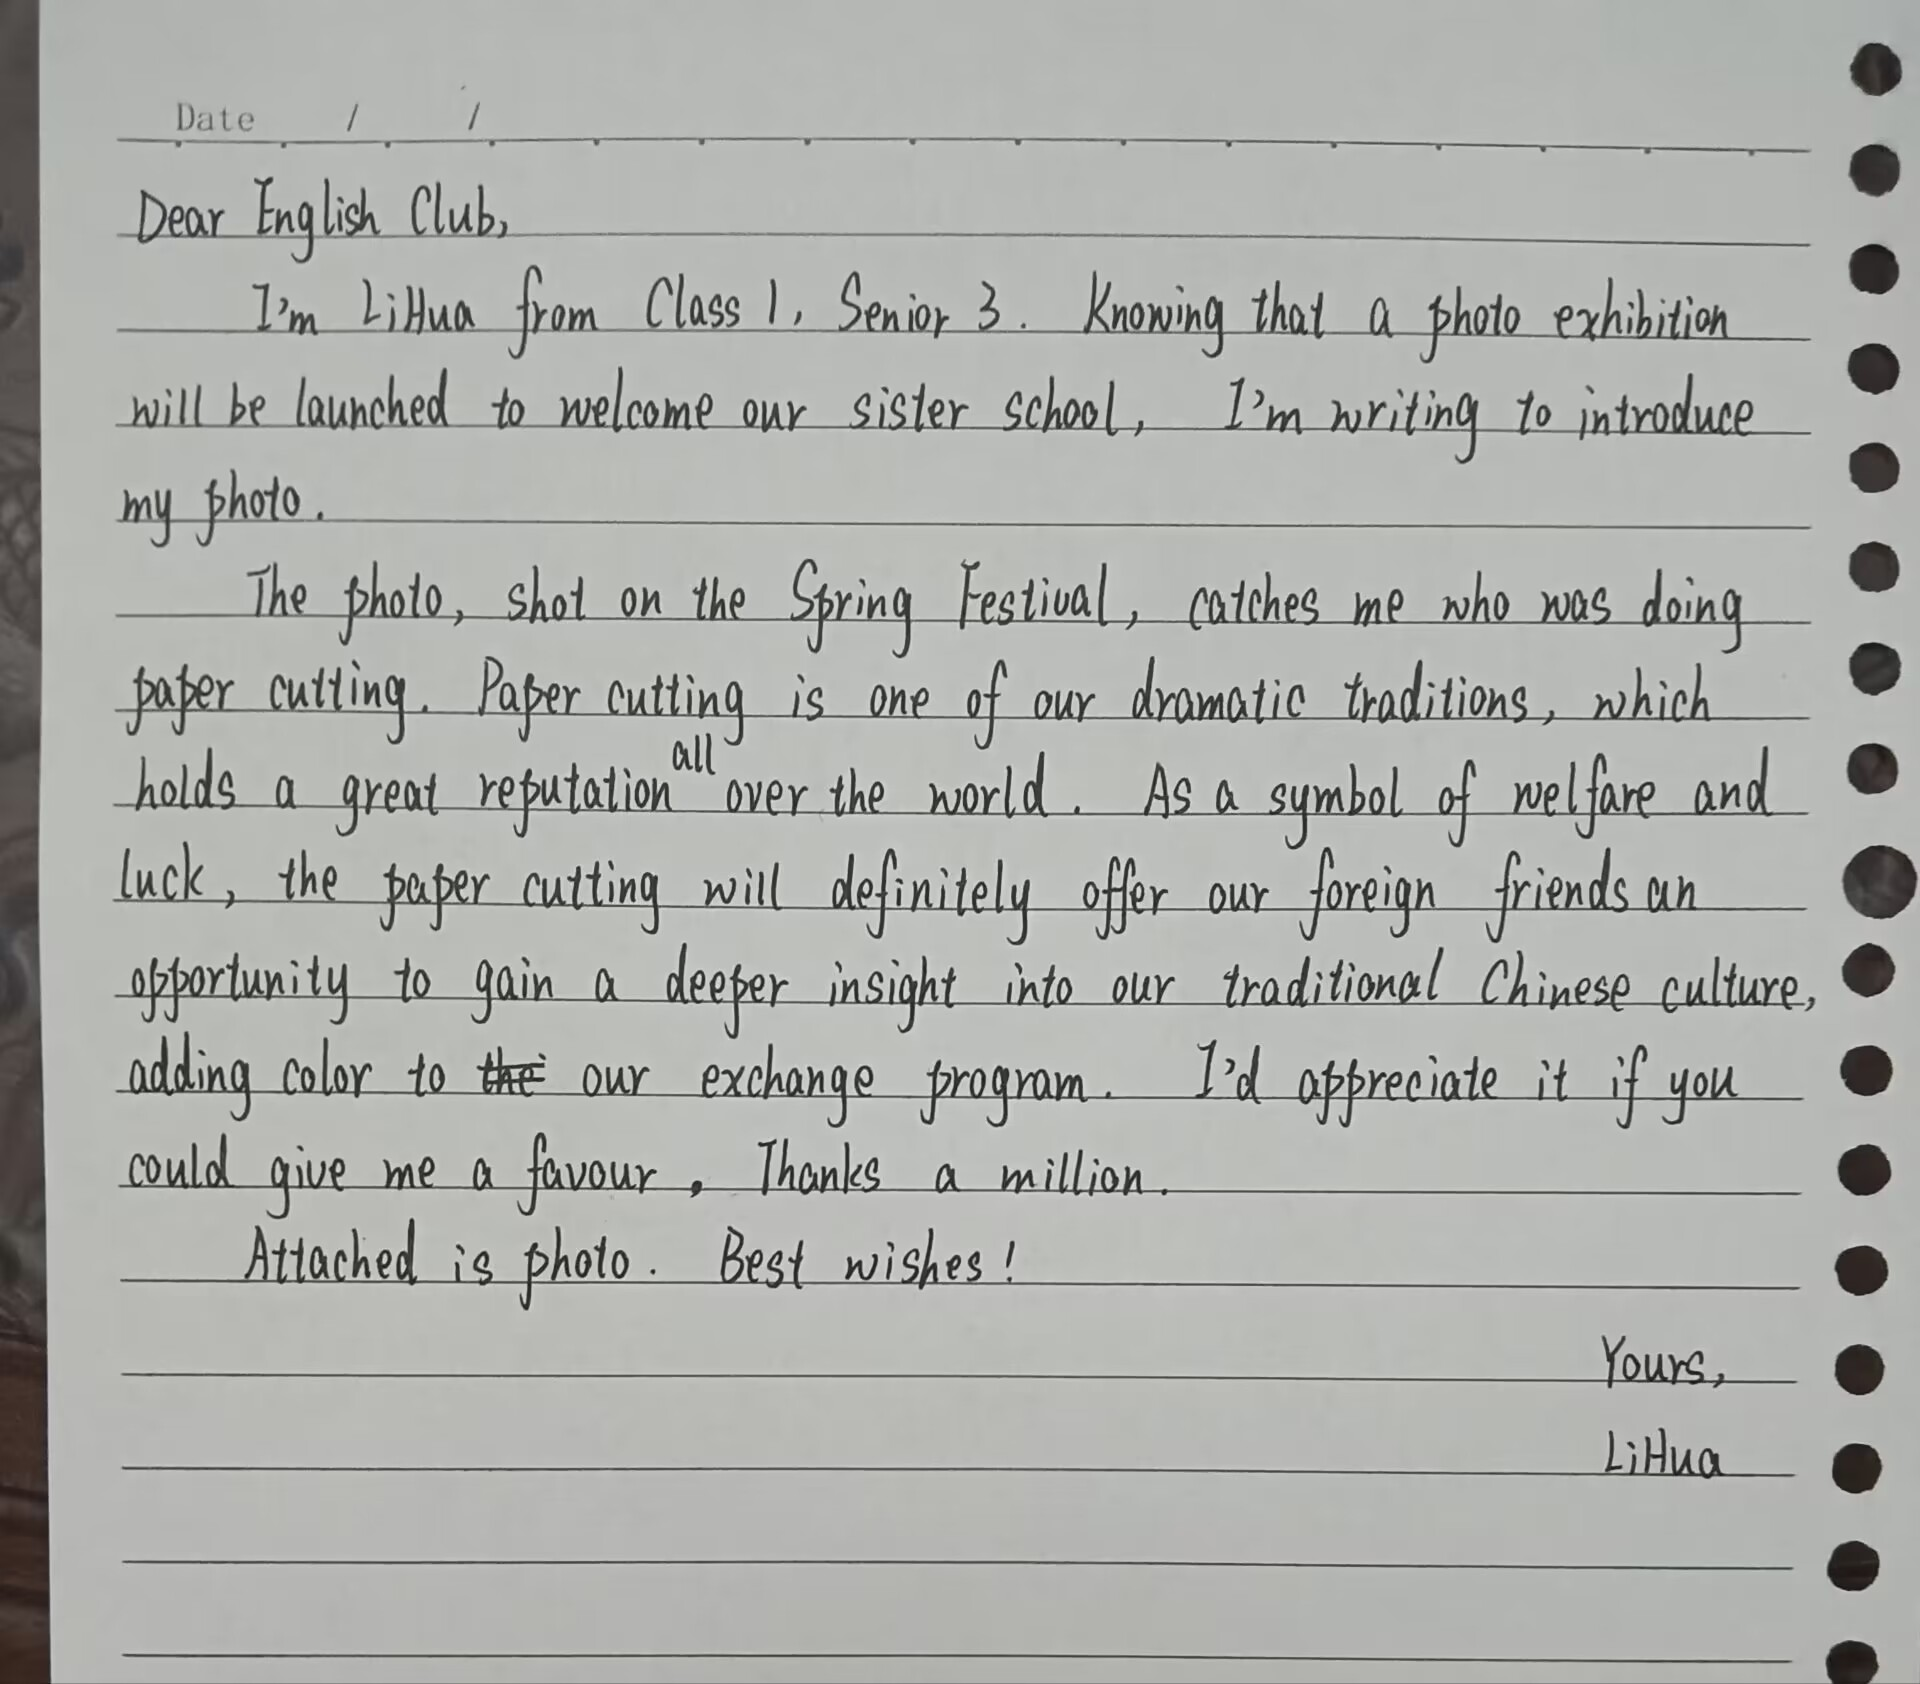 Date / /
Dear English Club,
I'm LiHua from Class 1, Senior 3. Knowing that a photo exhibition
will be launched to welcome our sister school, I'm writing to introduce
my photo.
The photo, shot on the Spring Festival, catches me who was doing
paper cutting. Paper cutting is one of our dramatic traditions, which
holds a great reputation all over the world. As a symbol of welfare and
luck, the paper cutting will definitely offer our foreign friends an
opportunity to gain a deeper insight into our traditional Chinese culture,
adding color to the our exchange program. I'd appreciate it if you
could give me a favour. Thanks a million.
Attached is photo. Best wishes!
Yours,
LiHua